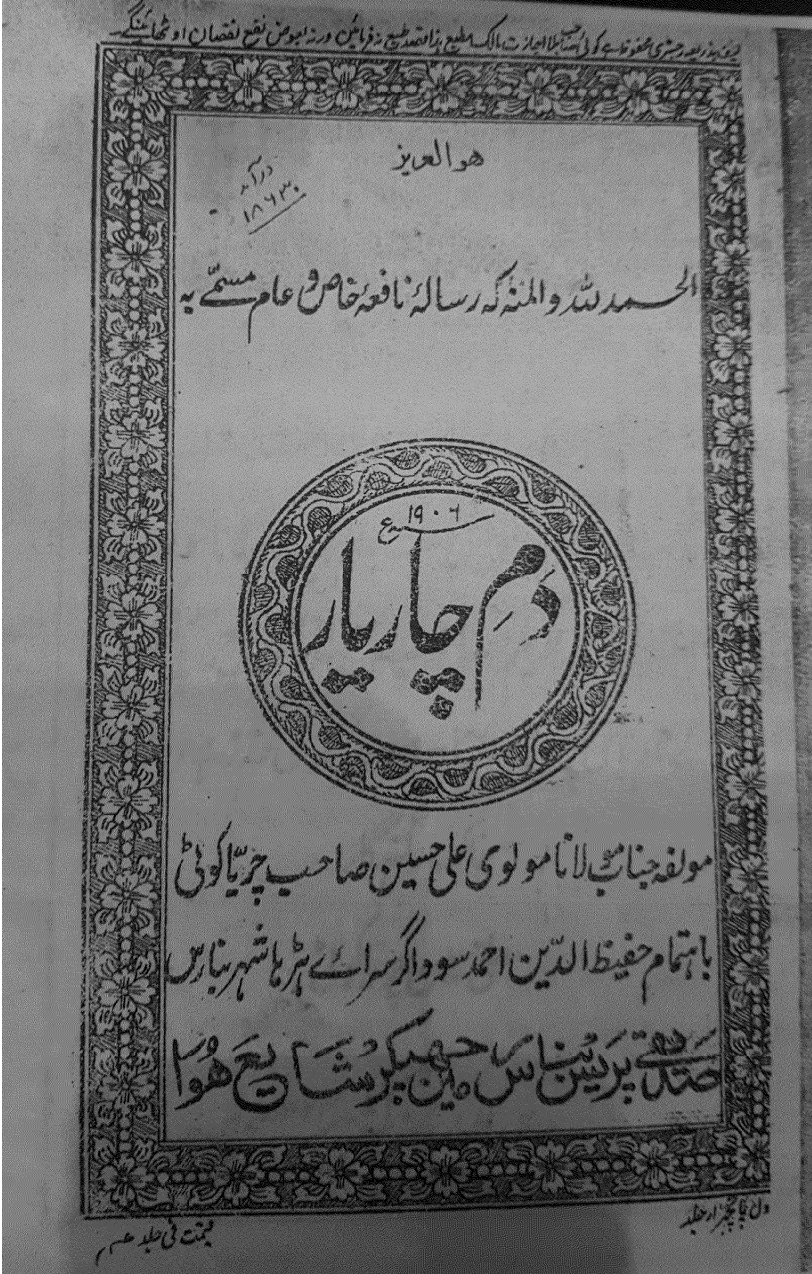 بذریعہ رجسٹری محفوظ ہے کوئی صاحب بلا اجازت مالک مطبع ہذا قصد طبع نہ فرمائیں ورنہ بعوض نفع نقصان اوٹھائینگے
هو العزیز
درآمد
۱۸۶۳۰
الحمد للہ والمنہ کہ رسالۂ نافعۂ خاص و عام مسمّے بہ
۱۹۰۶ء
دَمِ چار یار
مولفہ جناب مولانا مولوی علی حسین صاحب چریّا کوٹی
باہتمام حفیظ الدّین احمد سوداگر سراے ہڑہا شہر بنارس
صدیقی پریس بنارس مین چھپکر شایع ہُوا
پانچہزار جلد
قیمت فی جلد